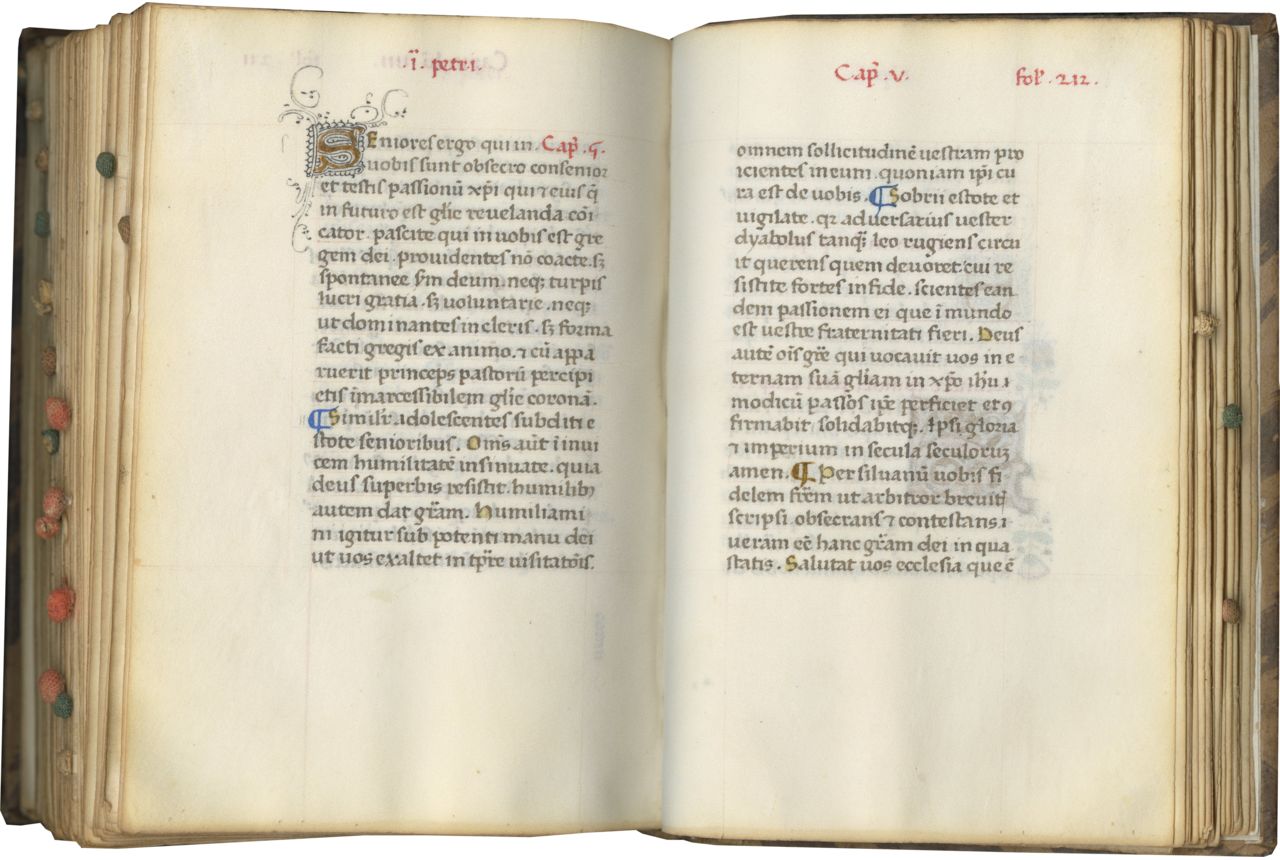 .i. petri.
Seniores ergo qui in Cap̄. 5.
uobis sunt obsecro consenior
et testis passionū xp̄i qui ⁊ eius q̄
in futuro est gl̄ie revelanda cōi
cator. pascite qui in uobis est gre
gem dei. providentes nō coacte. sꝫ
spontanee ẜm deum. neqꝫ turpis
lucri gratia. sꝫ voluntarie. neqꝫ
ut dominantes in cleris. sꝫ forma
facti gregis ex animo. ⁊ cū appa
ruerit princeps pastorū percipi
etis īmarcessibilem gl̄ie coronā.
¶ Simil̄r adolescentes subditi e
stote senioribus. Om̄s aūt ī inui
cem humilitatē insinuate. quia
deus superbis resistit. humilibꝫ
autem dat gr̄am. Humiliami
ni igitur sub potenti manu dei
ut uos exaltet in tp̄re uisitatōis.
Cap̄. v. fol̄. 212.
omnem sollicitudinē uestram pro
icientes in eum. quoniam ip̄i cu
ra est de uobis. ¶ Sobrii estote et
vigilate. qꝛ adversarius uester
dyabolus tanqꝫ leo rugiens circu
it querens quem devoret. cui re
sistite fortes in fide. scientes ean
dem passionem ei que ī mundo
est uestre fraternitati fieri. Deus
autē oīs gr̄e qui vocavit vos in e
ternam suā gl̄iam in xp̄o ih̄u. ı
modicū passos ip̄e perficiet et ꝯ
firmabit solidabitqꝫ. Ipsi gloria
⁊ imperium in secula seculoruꝫ
amen. ¶ Per siluanū uobis fi
delem fr̄em ut arbitror breuit̄
scripsi. obsecrans ⁊ contestans. ı
ueram eē hanc gr̄am dei in qua
statis. Salutat vos ecclesia que ē